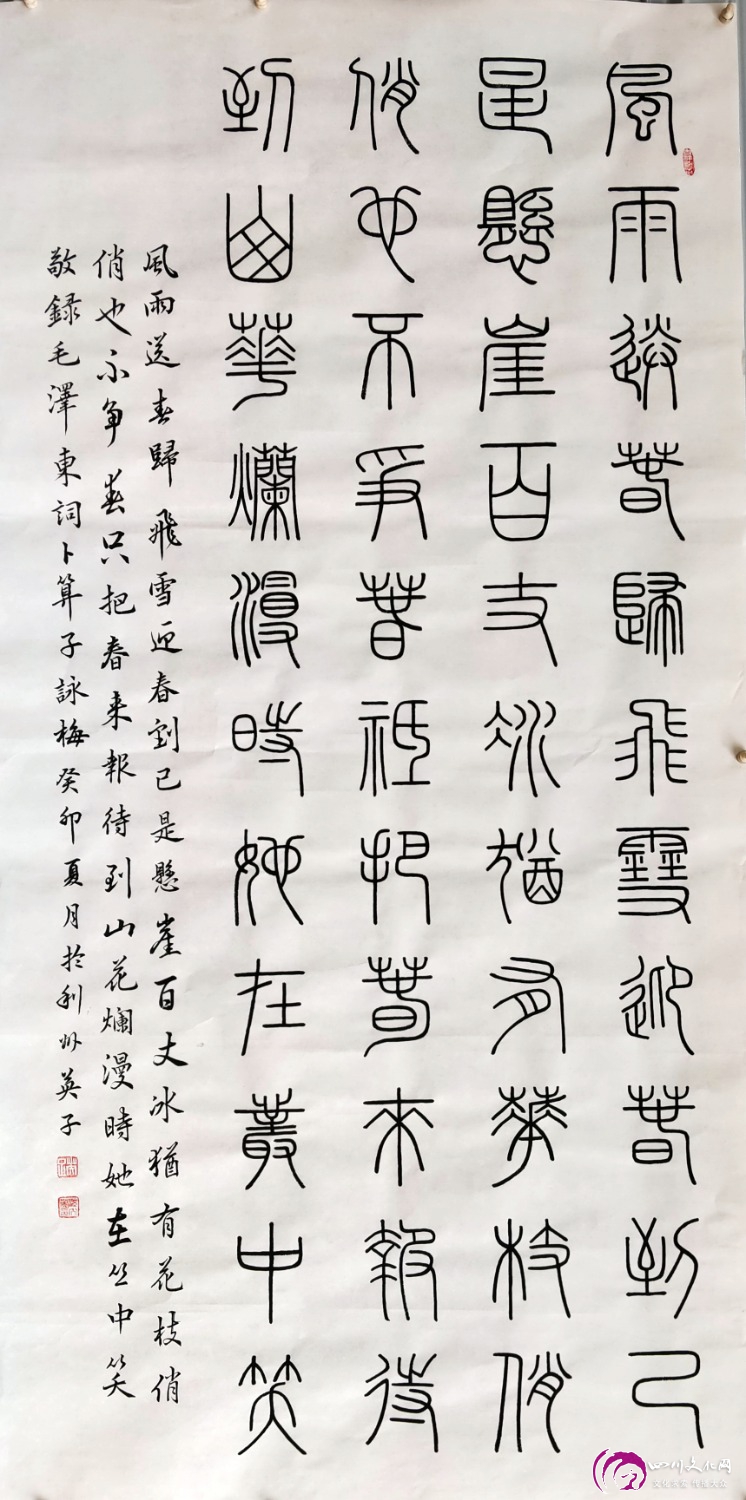 風雨送春歸飛雪迎春到已
是懸崖百丈冰猶有花枝俏
俏也不爭春祇把春來報待
到山華爛漫時她在叢中笑
風雨送春歸飛雪迎春到已是懸崖百丈冰猶有花枝俏
俏也不争春只把春来報待到山花爛漫時她在丛中笑
敬録毛澤東詞卜算子詠梅癸卯夏月於利州英子
四川文化网